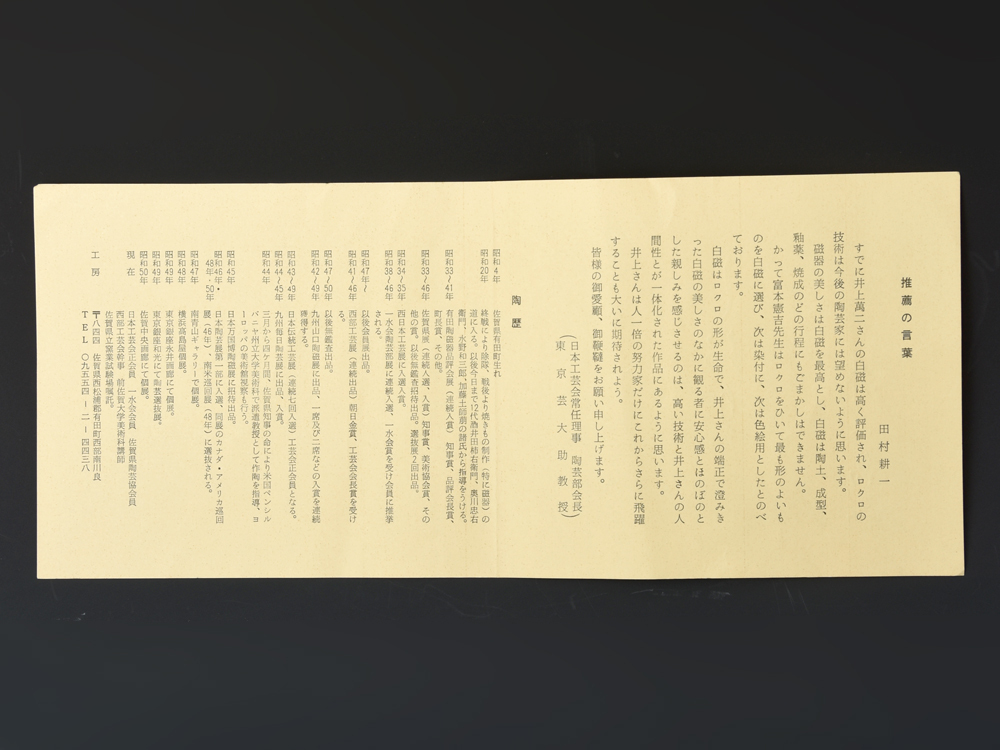 推薦の言葉
田村耕一
すでに井上萬二さんの白磁は高く評価され、ロクロの
技術は今後の陶芸家には望めないように思います。
磁器の美しさは白磁を最高とし、白磁は陶土、成型、
釉薬、焼成のどの行程にもごまかしはできません。
かって富本憲吉先生はロクロをひいて最も形のよいも
のを白磁に選び、次は染付に、次は色絵用としたとのべ
ております。
白磁はロクロの形が生命で、井上さんの端正で澄みき
った白磁の美しさのなかに観る者に安心感とほのぼのと
した親しみを感じさせるのは、高い技術と井上さんの人
間性とが一体化された作品にあるように思います。
井上さんは人一倍の努力家だけにこれからさらに飛躍
することも大いに期待されよう。
皆様の御愛顧、御鞭韃をお願い申し上げます。
(日本工芸会常任理事 陶芸部会長
東京芸大助教授)
陶歴
昭和4年 佐賀県有田町生れ
昭和20年 終戦により除隊、戦後より焼きもの制作(特に磁器)の
道に入る。以後今日まで12代酒井田柿右衛門、奥川忠右
衛門、水野和三郎、加藤土師萠の諸氏から指導をうける。
昭和33〜41年 有田陶磁器品評会展(連続入賞)知事賞、品評会長賞、
町長賞、その他。
昭和33〜46年 佐賀県展(連続入選、入賞)知事賞、美術協会賞、その
他の賞。以後無鑑査招待出品。選抜展2回出品。
昭和34〜35年 西日本工芸展に入選入賞。
昭和38〜46年 一水会陶芸部展に連続入選、一水会賞を受け会員に推挙
される。
昭和47年〜 以後会員展出品。
昭和41〜46年 西部工芸展(連続出品)朝日金賞、工芸会会長賞を受け
る。
昭和47〜50年 以後無鑑査出品。
昭和42〜49年 九州山口陶磁展に出品、一席及び二席などの入賞を連続
獲得する。
昭和43〜49年 日本伝統工芸展(連続七回入選)工芸会正会員となる。
昭和44〜45年 九州毎日陶芸展に出品、入賞。
昭和44年 三月から四か月間、佐賀県知事の命により米国ペンシル
バニヤ州立大学美術科で派遣教授として作陶を指導、ヨ
ーロッパの美術館視察も行う。
昭和45年 日本万国博陶磁展に招待出品。
昭和46年・ 日本陶芸展第一部に入選、同展のカナダ・アメリカ巡回
48年・50年 展(46年)、南米巡回展(48年)に選抜される。
昭和47年 南青山ギャラリーで個展。
昭和48年 横浜髙島屋個展。
昭和49年 東京銀座永井画廊にて個展。
昭和49年 東京銀座和光にて陶芸選抜展。
昭和50年 佐賀中央画廊にて個展。
現在 日本工芸会正会員 一水会会員 佐賀県陶芸協会員
西部工芸会幹事 前佐賀大学美術科講師
佐賀県立窯業試験場嘱託。
工房 〒八四四 佐賀県西松浦郡有田町西部南川良
TEL 〇九五五四ー二ー四四三八